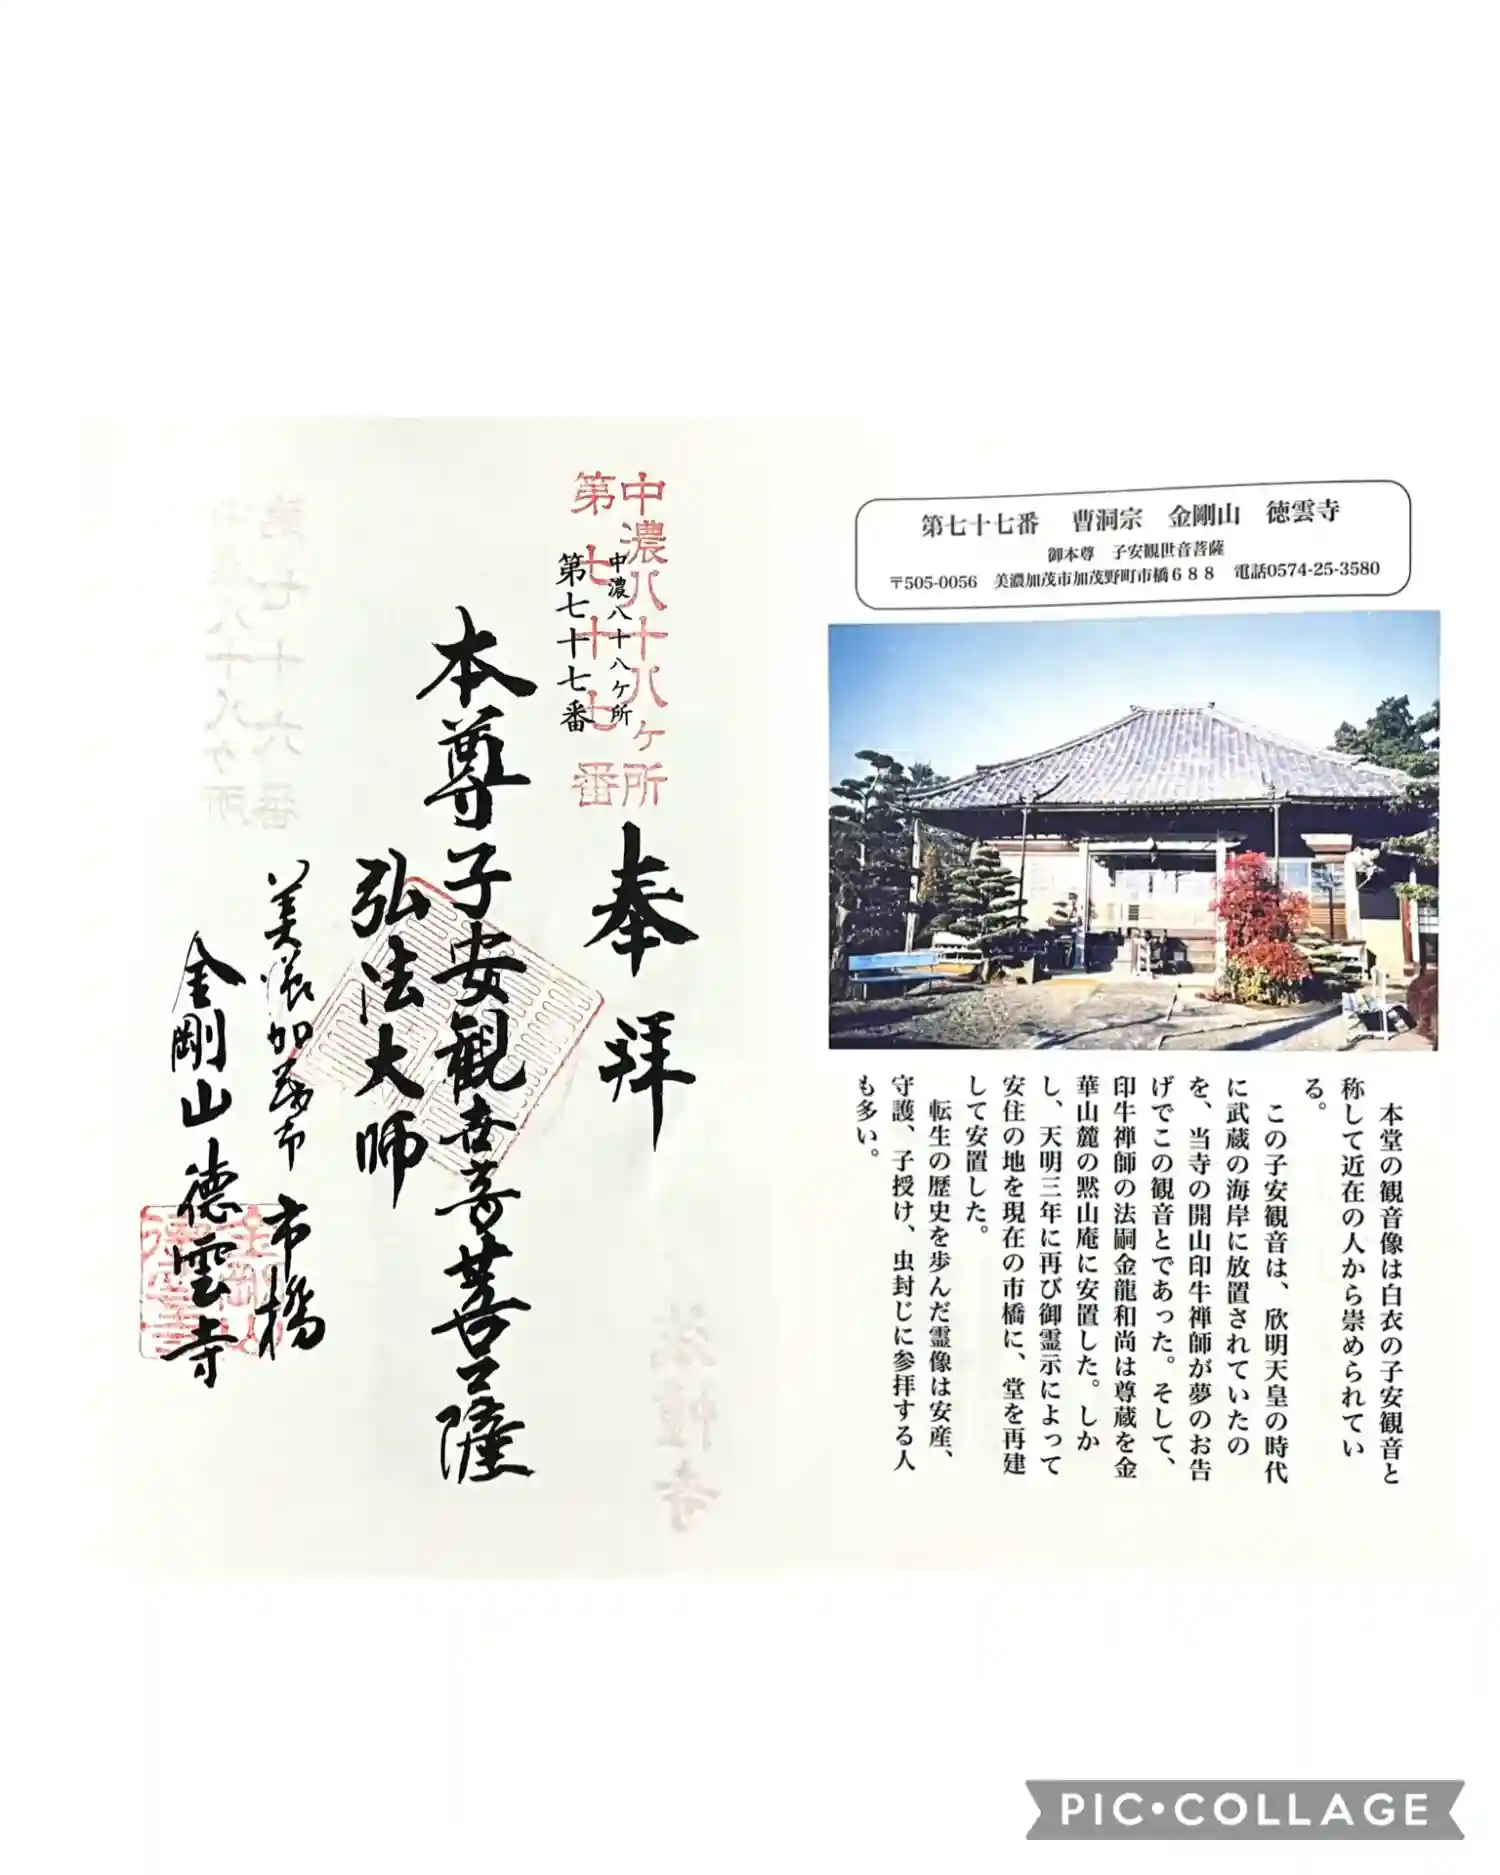 第七十七番　曹洞宗　金剛山　徳雲寺
御本尊　子安観世音菩薩
〒505-0056　美濃加茂市加茂野町市橋688　電話0574-25-3580
本堂の観音像は白衣の子安観音と
称して近在の人から崇められてい
る。
この子安観音は、欣明天皇の時代
に武蔵の海岸に放置されていたの
を、当寺の開山印牛禅師が夢のお告
げでこの観音とであった。そして、
印牛禅師の法嗣金龍和尚は尊蔵を金
華山麓の黙山庵に安置した。しか
し、天明三年に再び御霊示によって
安住の地を現在の市橋に、堂を再建
して安置した。
転生の歴史を歩んだ霊像は安産、
守護、子授け、虫封じに参拝する人
も多い。
中濃八十八ヶ所
第七十七番
中濃八十八ケ所
第七十七番
奉拝
本尊子安観世音菩薩
弘法大師
美濃加茂市 市橋
金剛山 徳雲寺
PIC•COLLAGE